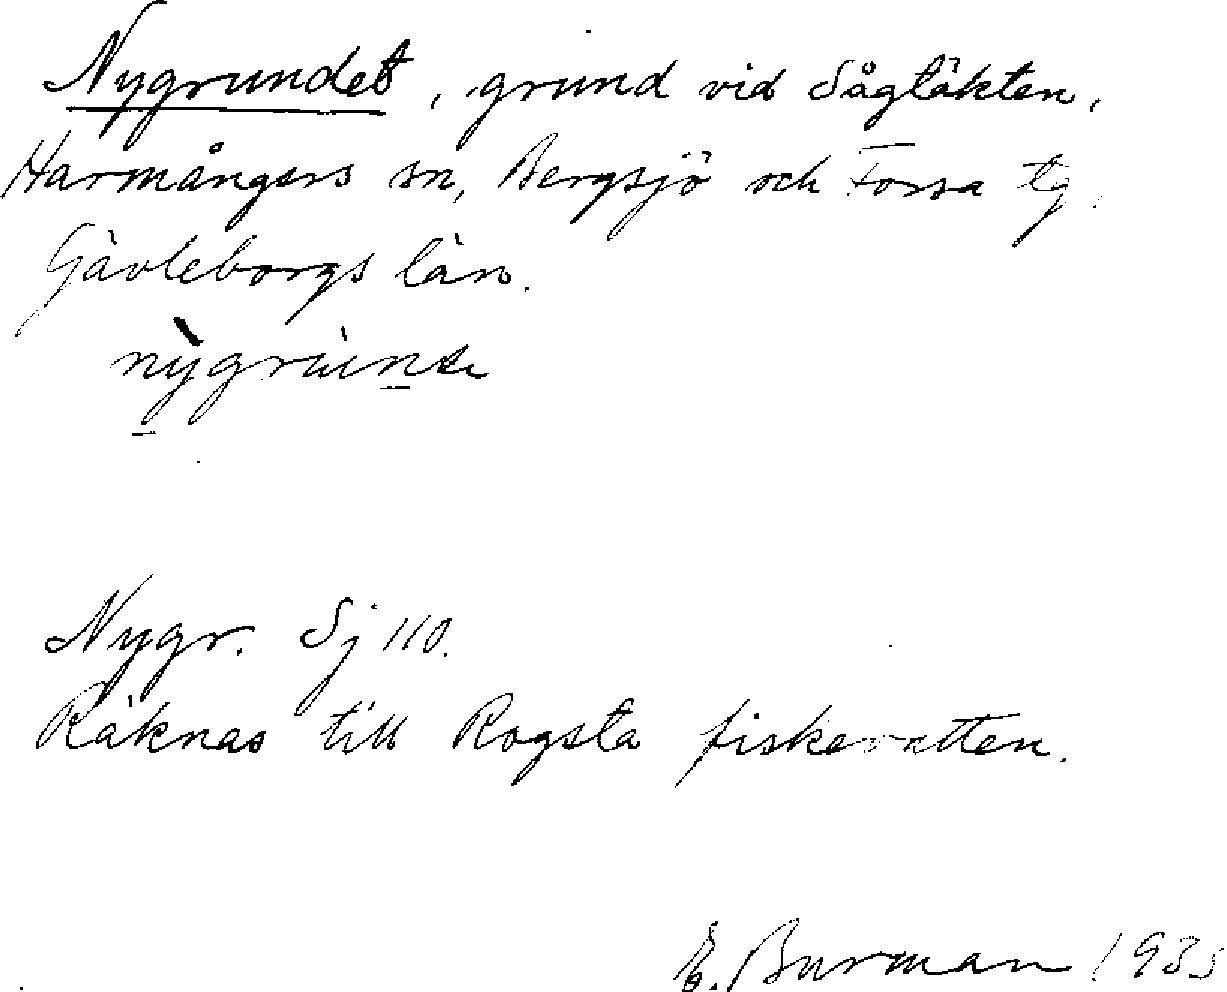 Nygrundet, grund vid Sågtäkten,
Harmångers sn, Bergsjö och Forsa tg.
Gävleborgs län.
nỳgrùnde
Nygr. Sj 110.
Räknas till Rogsta fiskevatten.
E. Burman 1935